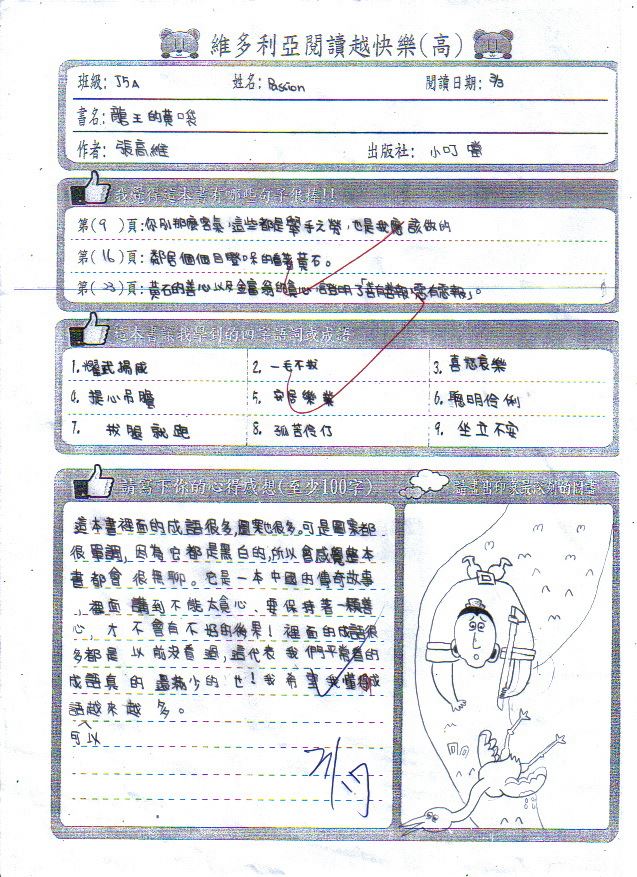 維多利亞閱讀越快樂(高)
班級: J5A 姓名: Passion 閱讀日期: 3/3
書名: 龍王的黃口袋
作者: 張高維 出版社: 小叮噹
我覺得這本書有哪些句子很棒!!
第( 9 )頁: 你別那麼客氣,這些都是舉手之勞,也是我應該做的
第( 16 )頁: 鄰居個個目瞪口呆的看著黃石。
第( 23 )頁: 黃石的善心以及金富翁的貪心,證明了「善有善報,惡有惡報」。
這本書讓我學到的四字語詞或成語
1. 耀武揚威 2. 一毛不拔 3. 喜怒哀樂
4. 提心吊膽 5. 安居樂業 6. 聰明伶俐
7. 拔腿就跑 8. 孤苦伶仃 9. 坐立不安
請寫下你的心得感想(至少100字) 請畫出印象最深刻的圖畫
這本書裡面的成語很多,圖案也很多。可是圖案都
很單調,因為它都是黑白的,所以會感覺整本
書都會很無聊。它是一本中國的傳奇故事
,裡面講到不能太貪心、要保持著一顆善
心,才不會有不好的後果!裡面的成語很
多都是以前沒看過,這代表我們平常看的
成語真的還滿少的也!我希望我懂得成
語越來越多。
可以